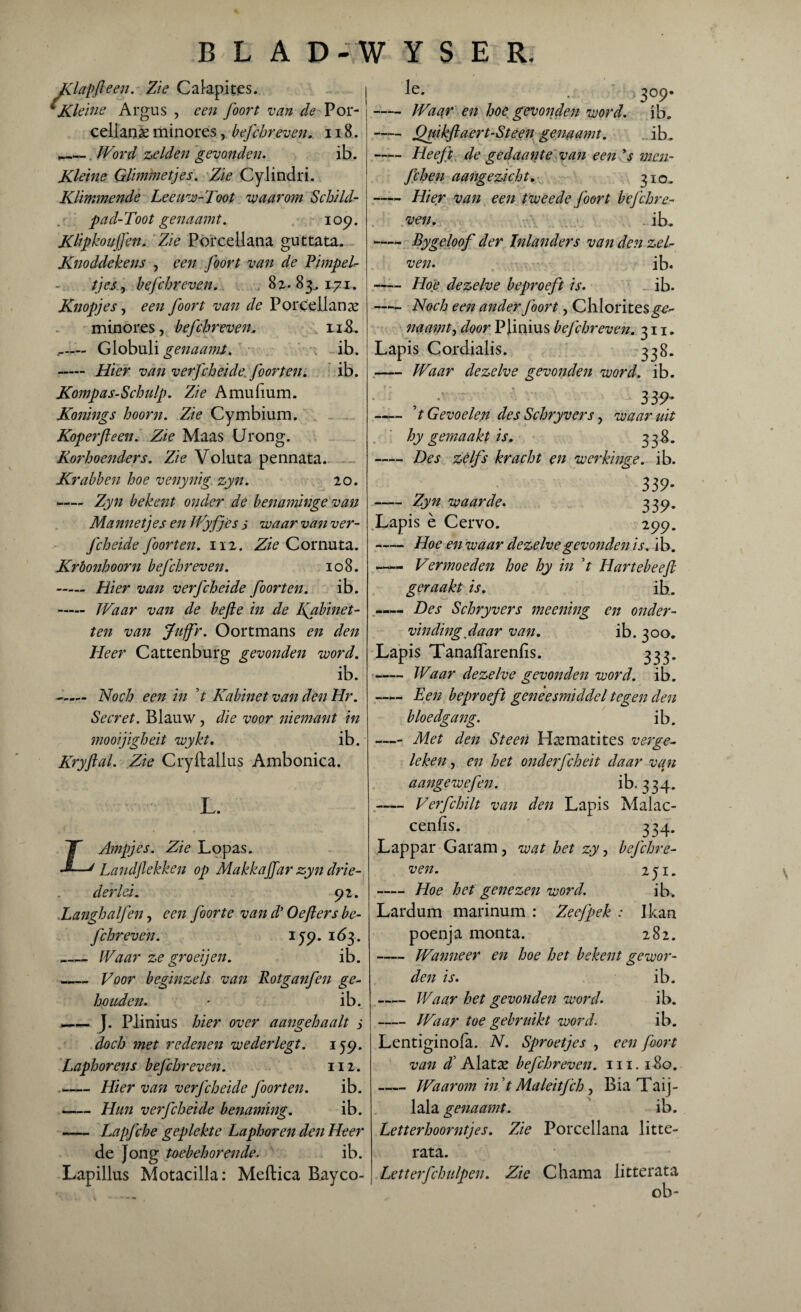 BLAD-WYSER.
Klapſteen. Zie Calapites.
Kleine Argus , een ſoort van de Por-
cellanæ minores, beſchreven. 118.
—— Word zelden gevonden. ib.
Kleine Glimmetjes. Zie Cylindri.
Klimmende Leeuw-Toot waarom Schild-
pad-Toot genaamt. 109.
Klipkouſſen. Zie Porcellana guttata.
Knoddekens , een ſoort van de Pimpel-
tjes, beſchreven. 82. 83. 171.
Knopjes, een ſoort van de Porcellanæ
minores, beſchreven. 118.
—— Globuli genaamt. ib.
—— Hier van verſcheide ſoorten. ib.
Kompas-Schulp. Zie Amuſium.
Konings hoorn. Zie Cymbium.
Koperſteen. Zie Maas Urong.
Korhoenders. Zie Voluta pennata.
Krabben hoe venynig zyn. 20.
—— Zyn bekent onder de benaminge van
Mannetjes en Wyfjes ; waar van ver-
ſcheide ſoorten. 112. Zie Cornuta.
Krôonhoorn beſchreven. 108.
—— Hier van verſcheide ſoorten. ib.
—— Waar van de beſte in de Kabinet-
ten van Juffr. Oortmans en den
Heer Cattenburg gevonden word.
ib.
—— Noch een in 't Kabinet van den Hr.
Secret. Blauw, die voor niemant in
mooijigheit wykt. ib.
Kryſtal. Zie Cryſtallus Ambonica.
L.
LAmpjes. Zie Lopas.
Landſlekken op Makkaſſar zyn drie-
derlei. 92.
Langhalſen, een ſoorte van d' Oeſters be-
ſchreven. 159. 163.
—— Waar ze groeijen. ib.
—— Voor beginzels van Rotganſen ge-
houden. ib.
—— J. Plinius hier over aangehaalt ;
doch met redenen wederlegt. 159.
Laphorens beſchreven. 112.
—— Hier van verſcheide ſoorten. ib.
—— Hun verſcheide benaming. ib.
—— Lapſche geplekte Laphoren den Heer
de Jong toebehorende. ib.
Lapillus Motacilla: Meſtica Bayco-
le. 309.
—— Waar en hoe gevonden word. ib.
—— Quikſtaert-Steen genaamt. ib.
—— Heeft de gedaante van een 's men-
ſchen aangezicht. 310.
—— Hier van een tweede ſoort beſchre-
ven. ib.
—— Bygeloof der Inlanders van den zel-
ven. ib.
—— Hoe dezelve beproeft is. ib.
—— Noch een ander ſoort, Chlorites ge-
naamt, door Plinius beſchreven. 311.
Lapis Cordialis. 338.
—— Waar dezelve gevonden word. ib.
339.
—— 't Gevoelen des Schryvers, waar uit
hy gemaakt is. 338.
—— Des zelfs kracht en werkinge. ib.
339.
—— Zyn waarde. 339.
Lapis è Cervo. 299.
—— Hoe en waar dezelve gevonden is. ib.
—— Vermoeden hoe hy in 't Hartebeeſt
geraakt is. ib.
—— Des Schryvers meening en onder-
vinding daar van. ib. 300.
Lapis Tanaſſarenſis. 333.
—— Waar dezelve gevonden word. ib.
—— Een beproeft geneesmiddel tegen den
bloedgang. ib.
—— Met den Steen Hæmatites verge-
leken, en het onderſcheit daar van
aangeweſen. ib. 334.
—— Verſchilt van den Lapis Malac-
cenſis. 334.
Lappar Garam, wat het zy, beſchre-
ven. 251.
—— Hoe het genezen word. ib.
Lardum marinum : Zeeſpek : Ikan
poenja monta. 282.
—— Wanneer en hoe het bekent gewor-
den is. ib.
—— Waar het gevonden word. ib.
—— Waar toe gebruikt word. ib.
Lentiginoſa. N. Sproetjes , een ſoort
van d' Alatæ beſchreven. 111. 180.
—— Waarom in 't Maleitſch, Bia Taij-
lala genaamt. ib.
Letterhoorntjes. Zie Porcellana litte-
rata.
Letterſchulpen. Zie Chama litterata
ob-